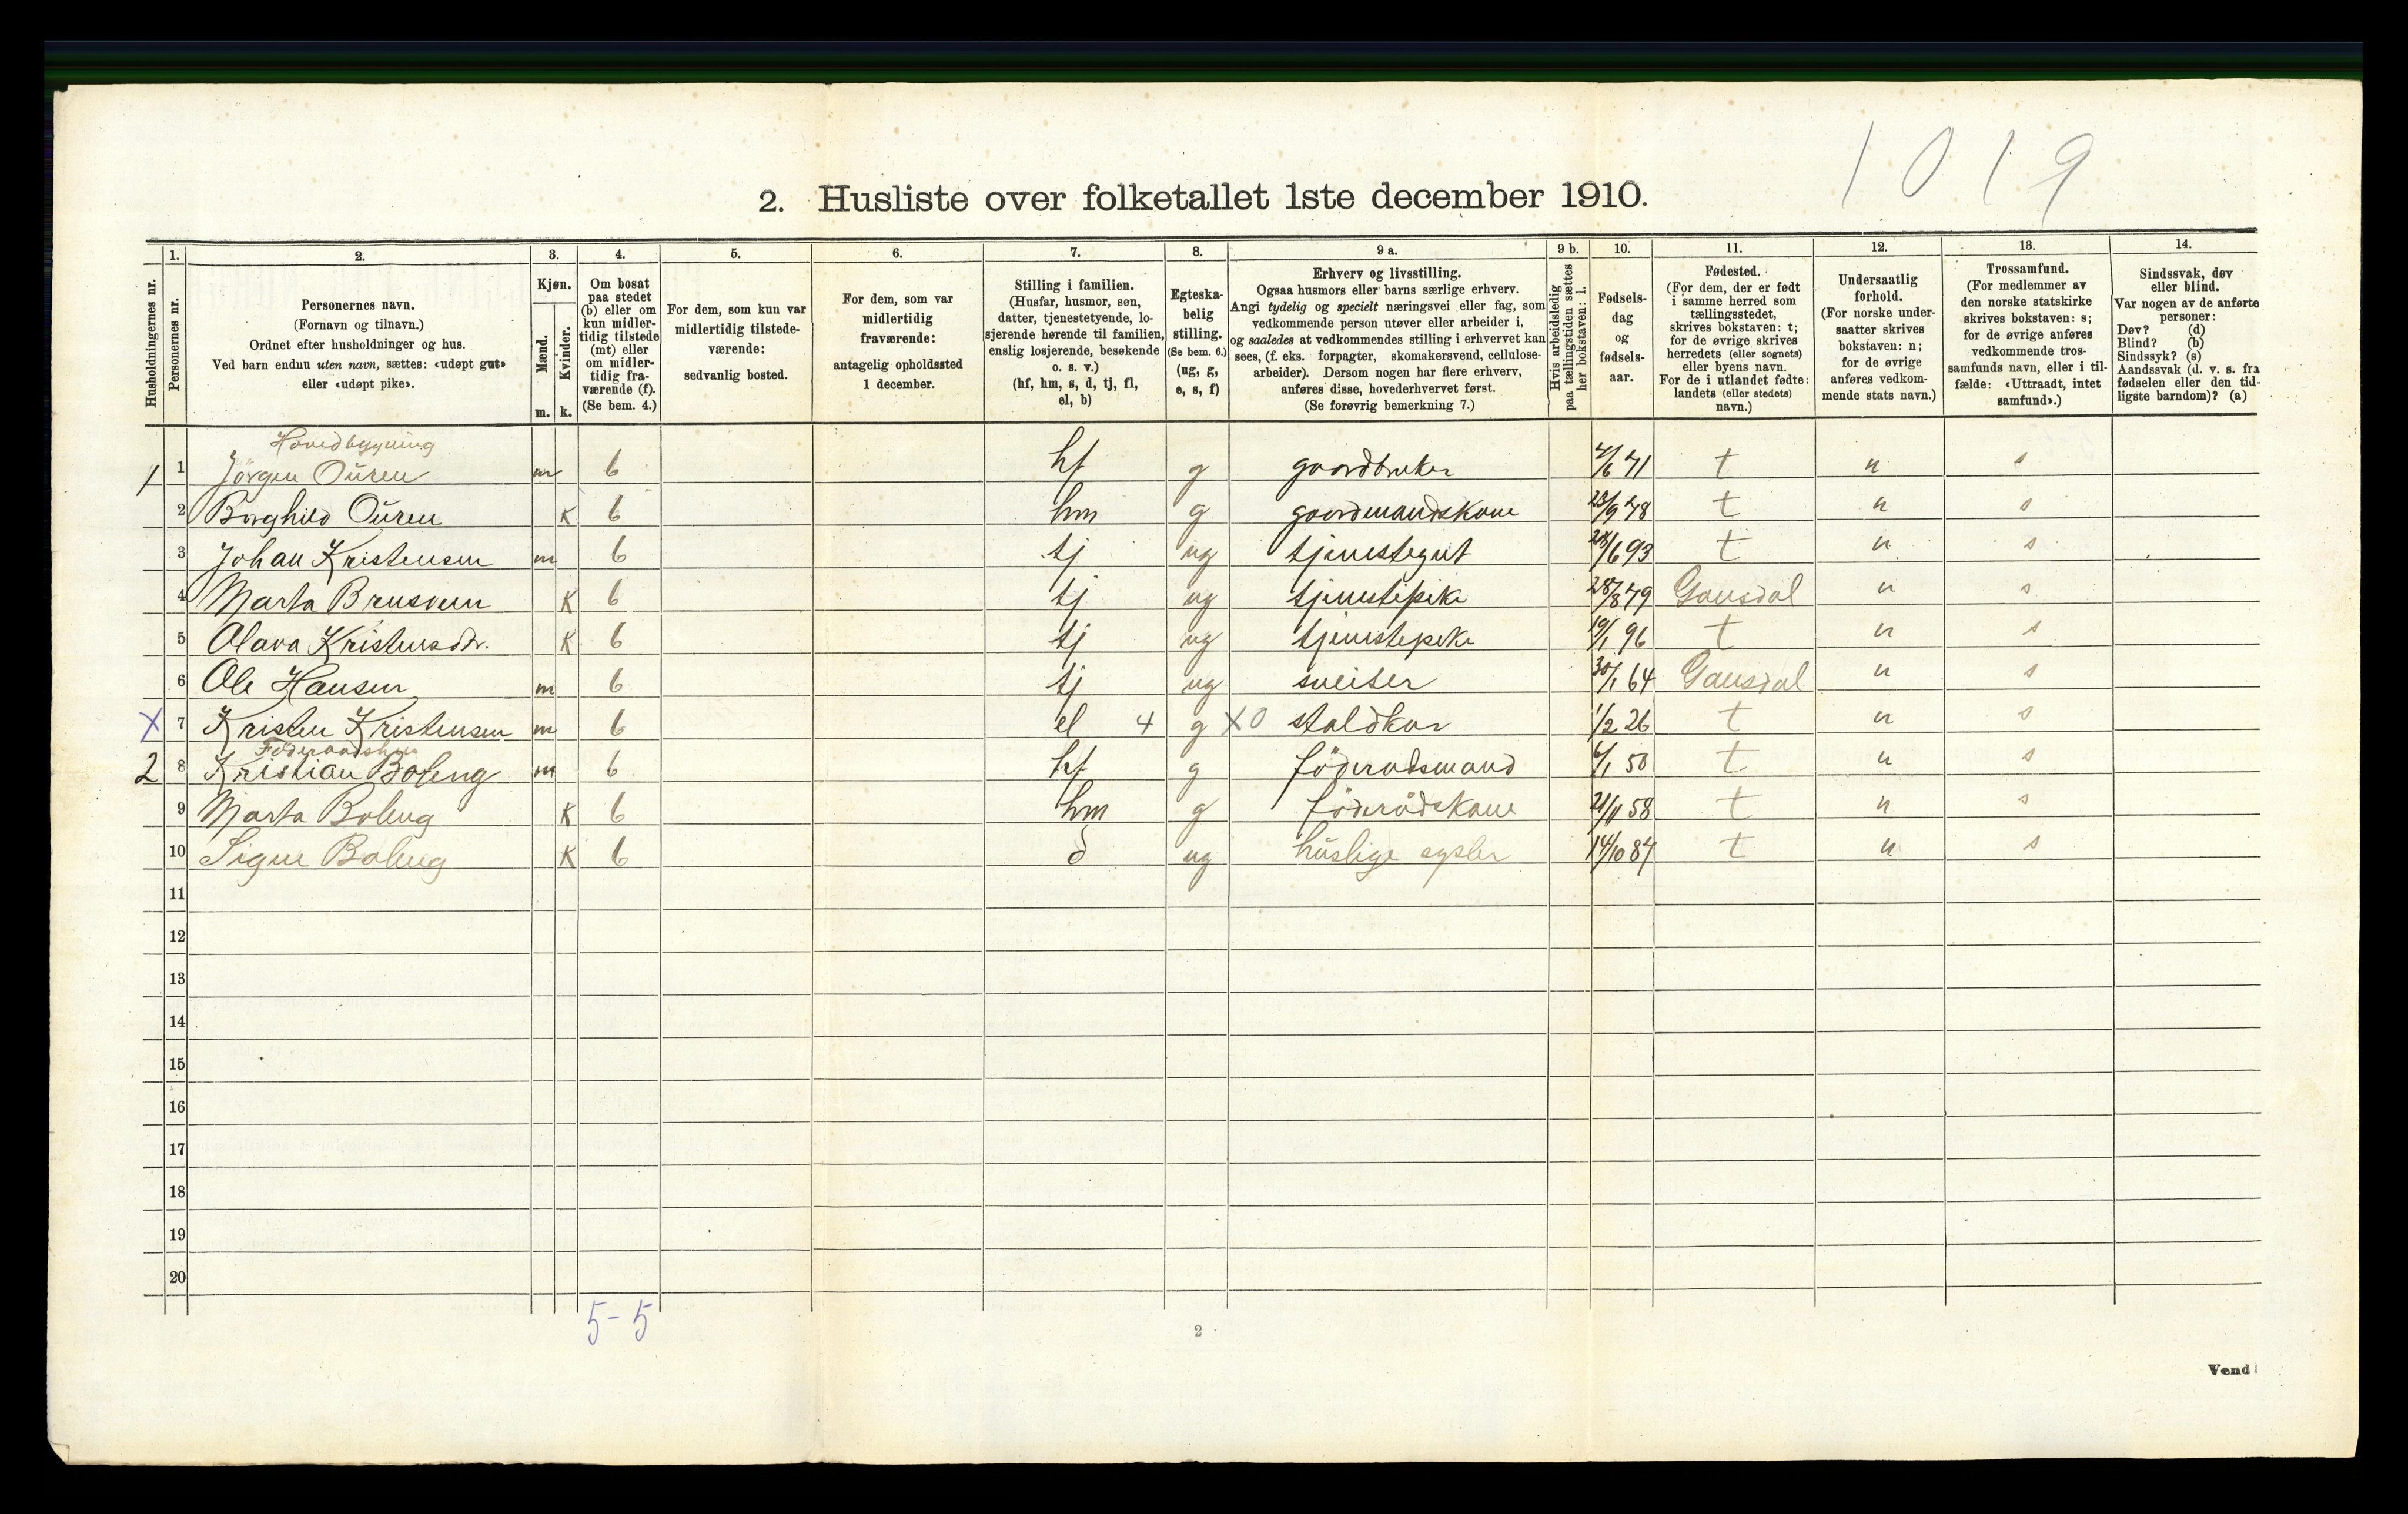 1019
2. Husliste over folketallet 1ste december 1910.
Husholdningernes nr.
1.
Personernes nr.
2.
Personernes navn.
(Fornavn og tilnavn.)
Ordnet efter husholdninger og hus.
Ved barn endnu uten navn, sættes: «udøpt gut»
eller «udøpt pike».
3.
Kjøn.
Mænd.
m.
Kvinder.
k.
4.
Om bosat
paa stedet
(b) eller om
kun midler-
tidig tilstede
(mt) eller
om midler-
tidig fra-
værende (f).
(Se bem. 4.)
5.
For dem, som kun var
midlertidig tilstede-
værende:
sedvanlig bosted.
6.
For dem, som var
midlertidig
fraværende:
antagelig opholdssted
1 december.
7.
Stilling i familien.
(Husfar, husmor, søn,
datter, tjenestetyende, lo-
sjerende hørende til familien,
enslig losjerende, besøkende
o. s. v.)
(hf, hm, s, d, tj, fl,
el, b)
8.
Egteska-
belig
stilling.
(Se bem. 6.)
(ug, g,
e, s, f)
9 a.
Erhverv og livsstilling.
Ogsaa husmors eller barns særlige erhverv.
Angi tydelig og specielt næringsvei eller fag, som
vedkommende person utøver eller arbeider i,
og saaledes at vedkommendes stilling i erhvervet kan
sees, (f. eks. forpagter, skomakersvend, cellulose-
arbeider). Dersom nogen har flere erhverv,
anføres disse, hovederhvervet først.
(Se forøvrig bemerkning 7.)
9 b.
Hvis arbeidsledig
paa tællingstiden sættes
her bokstaven: l.
10.
Fødsels-
dag
og
fødsels-
aar.
11.
Fødested.
(For dem, der er født
i samme herred som
tællingsstedet,
skrives bokstaven: t;
for de øvrige skrives
herredets (eller sognets)
eller byens navn.
For de i utlandet fødte:
landets (eller stedets)
navn.)
12.
Undersaatlig
forhold.
(For norske under-
saatter skrives
bokstaven: n;
for de øvrige
anføres vedkom-
mende stats navn.)
13.
Trossamfund.
(For medlemmer av
den norske statskirke
skrives bokstaven: s;
for de øvrige anføres
vedkommende tros-
samfunds navn, eller i til-
fælde: «Uttraadt, intet
samfund».)
14.
Sindssvak, døv
eller blind.
Var nogen av de anførte
personer:
Døv? (d)
Blind? (b)
Sindssyk? (s)
Aandssvak (d. v. s. fra
fødselen eller den tid-
ligste barndom)? (a)
Hovedbygning
1 1 Jörgen Ouren m b hf g gaardbruker 4/6 71 t n s
2 Borghild Ouren K b hm g gaardmandskone 23/9 78 t n s
3 Johan Kristensen m b tj ug tjenestegut 28/6 93 t n s
4 Marta Brusveen K b tj ug tjenestepike 28/8 79 Gausdal n s
5 Olava Kristensdtr. K b tj ug tjenestepike 19/1 96 t n s
6 Ole Hansen m b tj ug sveiser 30/1 64 Gausdal n s
X 7 Kristen Kristensen m b el 4 g X0 staldkar 1/2 26 t n s
Föderaadshus
2 8 Kristian Boleng m b hf g föderadsmand 6/1 50 t n s
9 Marta Boleng K b hm g föderådskone 21/11 58 t n s
10 Signe Boleng K b d ug huslige sysler 14/10 87 t n s
11
12
13
14
15
16
17
18
19
20
5-5
2
Vend!